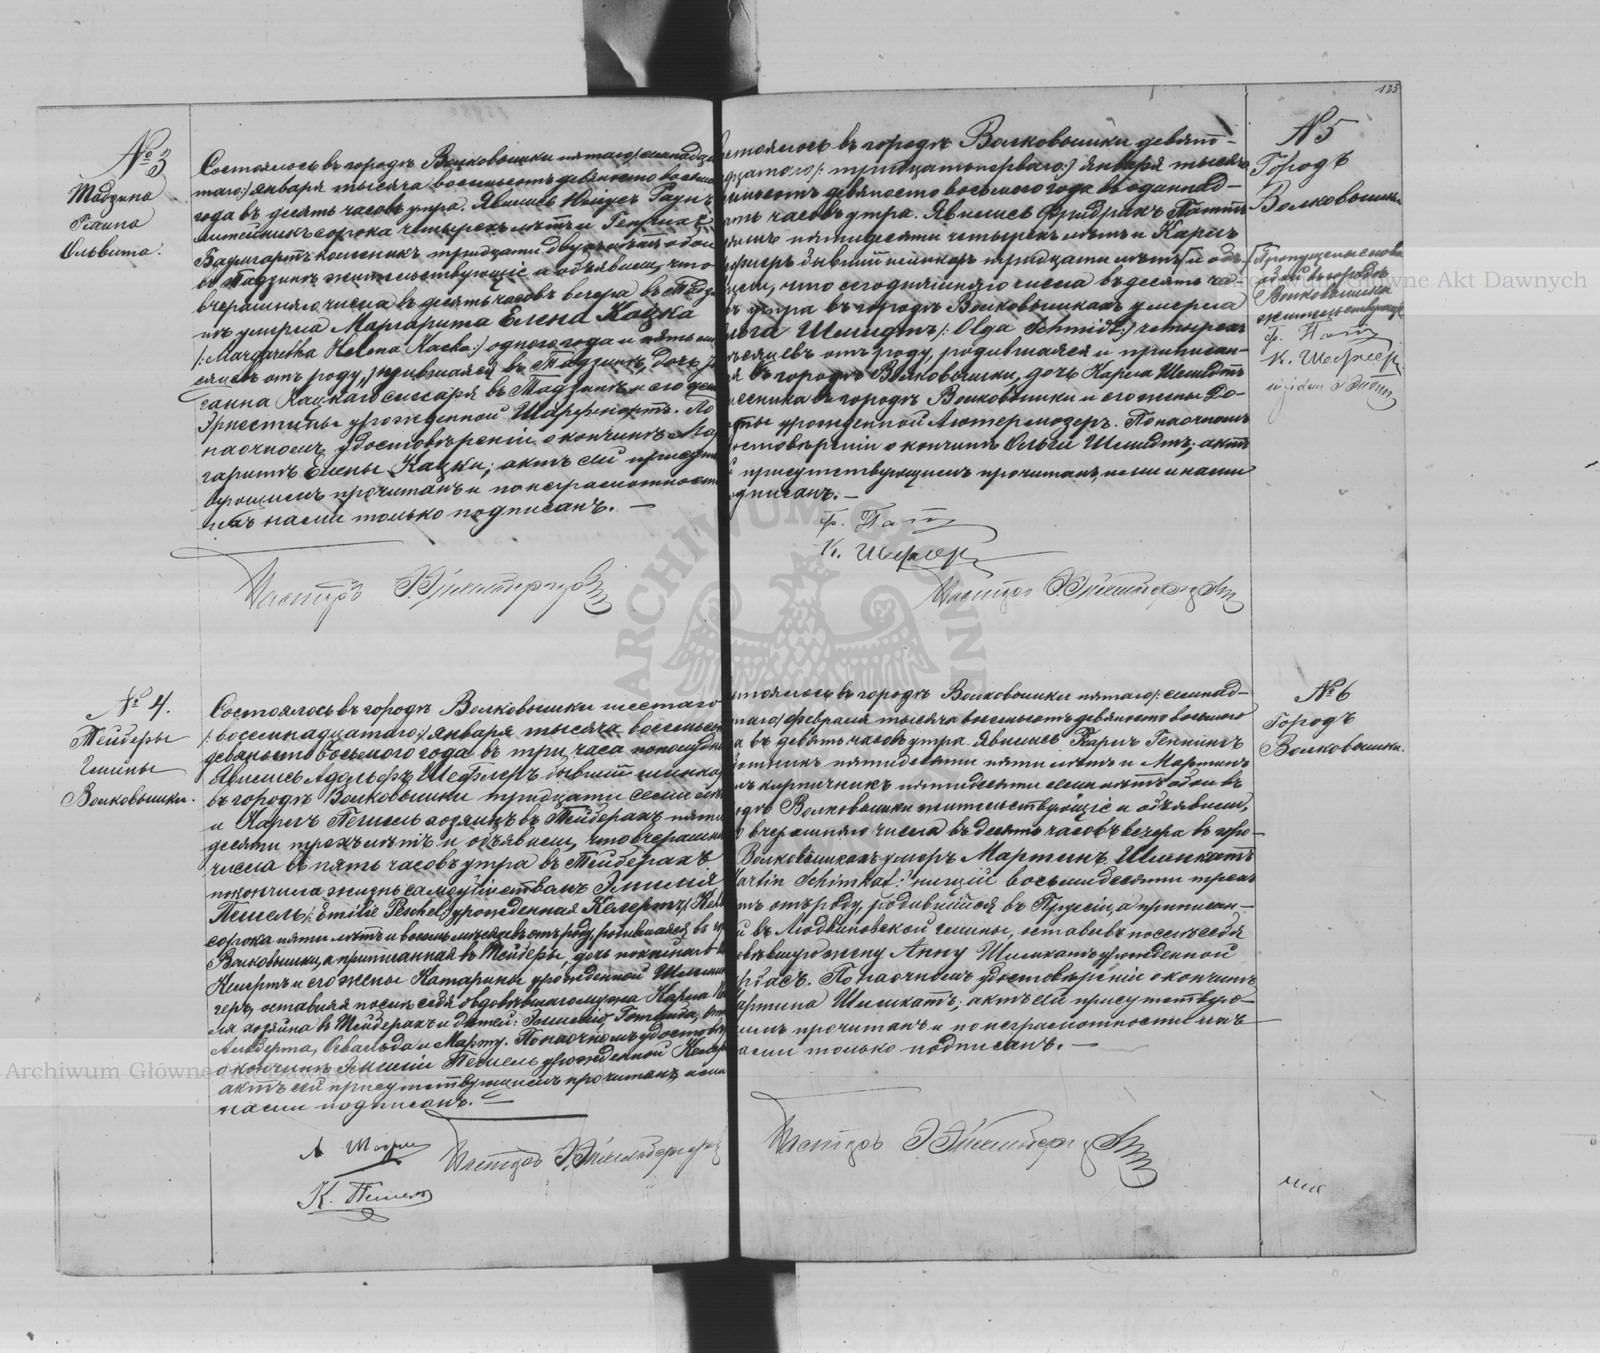 125
№ 3
Тадзина
Гмина
Ольвита.
Состоялось въ городѣ Волковышки пятаго /семнадца
таго:/ января тысяча восемьсотъ девяносто восьмаго
года въ десять часовъ утра. Явились
сорока четырехъ лѣтъ и Генрихъ
Баумгартъ каменникъ тридцати двухъ лѣтъ обои
въ Тадзинѣ жительствующіе и объявили, что
вчерашняго числа въ десять часовъ вечера въ Тадзи
нѣ умерла Маргарита Елена Кацка
/:Margaretha Helena Kacka:/ одного года и пять мѣ
сяцевъ отъ роду, родившаяся въ Тадзинѣ, дочь
Кацкаго слесаря въ Тадзинѣ и его жены
Эрнестины урожденной Шарфнортъ. По
наочномъ удостовѣреніи о кончинѣ Мар
гариты Елены Кацки; актъ сей присутст
вующимъ прочитанъ и по неграмотности
ихъ нами только подписанъ. —
Пасторъ
№ 4.
Тейберы
Гмины
Волковышки.
Состоялось въ городѣ Волковышки шестаго
/:восемнадцатаго:/ января тысяча восемьсотъ
девяносто восьмого года въ три часа пополудни
Явились Адольфъ Шефлеръ бывшій шинкарь
въ городѣ Волковышки тридцати семи лѣтъ
и Карлъ Пешель хозяинъ въ Тейберахъ пяти
десяти трехъ лѣтъ и объявили, что вчерашняго
числа въ пять часовъ утра въ Тейберахъ
покончила жизнь самоубійствомъ Эмилія
Пешель /:Emilie Peschel:/ урожденная Келертъ
сорока пяти лѣтъ и восемь мѣсяцевъ отъ роду, родившаяся въ
Волковышки, а приписанная въ Тейберы, дочь покойнаго
и его жены Катарины урожденной
геръ, оставивъ послѣ себя овдовѣвшаго мужа Карла Пеше
ля хозяина въ Тейберахъ и дѣтей: Эмилію,
Альберта, Освальда и Марту. По наочномъ удостовѣреніи
о кончинѣ Эмиліи Пешель урожденной Келертъ
актъ сей присутствующимъ прочитанъ, ими и
нами подписанъ. —
К. Пешель
Пасторъ
стоялось въ городѣ Волковышки девят-
дцатаго /:тридцать перваго:/ января тысяча
восемьсотъ девяносто восьмого года въ одиннад-
ать часовъ утра. Явились Фридрихъ Паттъ
пятидесяти четырехъ лѣтъ и Карлъ
Шефлеръ бывшій шинкарь тридцати лѣтъ и объ-
явили, что сегодняшняго числа въ десять час-
въ утра въ городѣ Волковышкахъ умерла
Ольга Шмидтъ /:Olga Schmidt:/ четырехъ
мѣсяцевъ отъ роду, родившаяся и приписан-
ая въ городѣ Волковышки, дочь Карла Шмидтъ
въ городѣ Волковышки и его жены До-
роты урожденной Лютермозеръ. По наочномъ
достовѣреніи о кончинѣ Ольги Шмидтъ; актъ
й присутствующимъ прочитанъ, ими и нами
одписанъ. —
Ф. Паттъ
К. Шефлеръ
Пасторъ
№ 5
Городъ
Волковышки.
Пропущены слова
обои въ городѣ
Волковышки
жительствующіе
Ф. Паттъ
К. Шефлеръ
стоялось въ городѣ Волковышки пятаго /:семнад-
цатаго/ февраля тысяча восемьсотъ девяносто восьмого
а въ девять часовъ утра. Явились Карлъ Геннингъ
пятидесяти пяти лѣтъ и Мартинъ
кирпичникъ пятидесяти семи лѣтъ обои въ
одѣ Волковышки жительствующіе и объявили,
о вчерашняго числа въ десять часовъ вечера въ горо-
Волковышкахъ умеръ Мартинъ Шимкатъ
Martin Schimkat:/ нищій восьмидесяти трехъ
тъ отъ роду, родившійся въ Пруссіи, а приписан-
й въ Людвиновской гмины, оставивъ послѣ себя
овѣвшую жену Анну Шимкатъ урожденной
. По наочномъ удостовѣреніи о кончинѣ
артина Шимкатъ; актъ сей присутствую-
имъ прочитанъ и по неграмотности ихъ
ами только подписанъ. —
Пасторъ
№ 6
Городъ
Волковышки.
ARCHIWUM GŁÓWNE
Archiwum Główne Akt Dawnych
Archiwum Główne Akt Dawnych